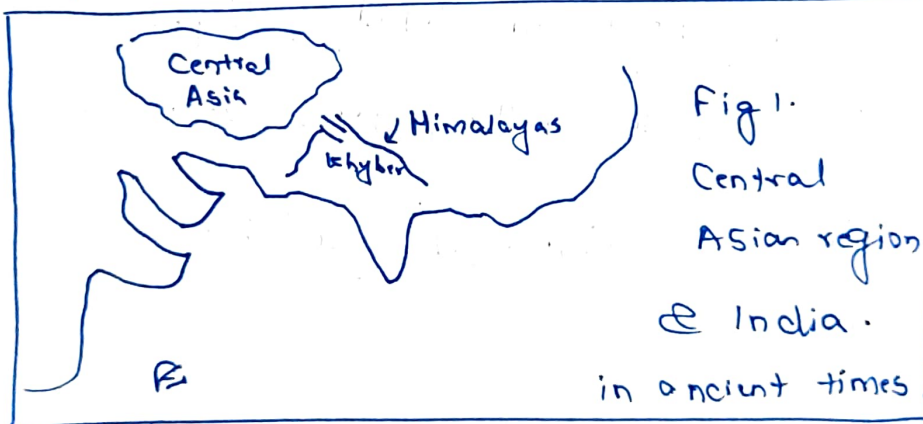 Central
Asia
Himalayas
Khyber
Fig 1.
Central
Asian region
& India.
in ancient times